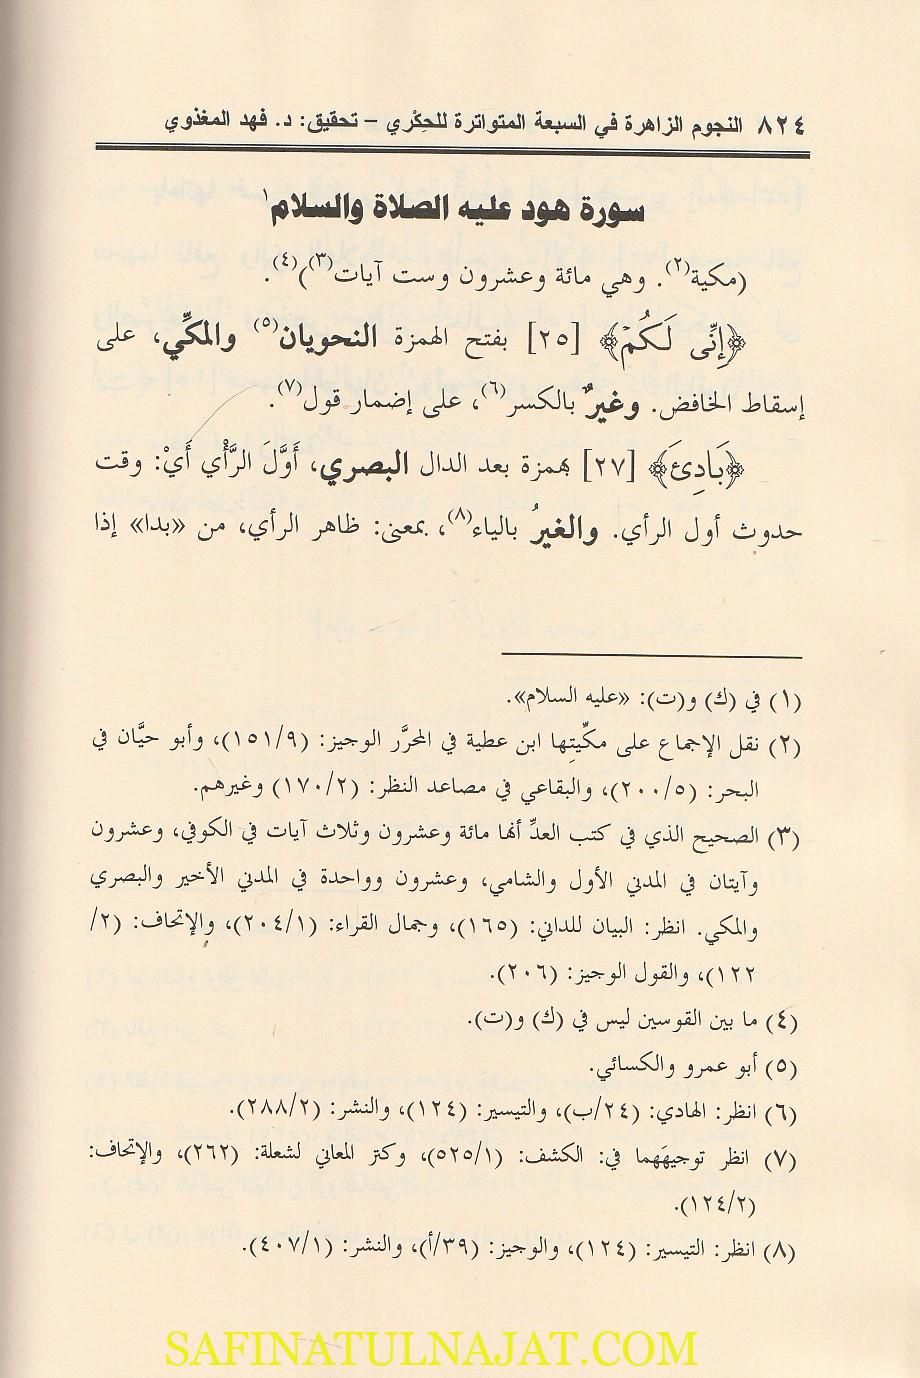 ٨٢٤ النجوم الزاهرة في السبعة المتواترة للحِكْري – تحقيق: د. فهد المغذوي
سورة هود عليه الصلاة والسلام١
(مكية(٢). وهي مائة وعشرون وست آيات(٣))(٤).
﴿إِنِّى لَكُمْ﴾ [٢٥] بفتح الهمزة النحويان(٥) والمكِّي، على
إسقاط الخافض. وغيرٌ بالكسر(٦)، على إضمار قول(٧).
﴿بَادِئَ﴾ [٢٧] بهمزة بعد الدال البصري، أَوَّلَ الرَّأْي أَيْ: وقت
حدوث أول الرأي. والغيرُ بالياء(٨)، بمعنى: ظاهر الرأي، من «بدا» إذا
(١) في (ك) و(ت): «عليه السلام».
(٢) نقل الإجماع على مكِّيتِها ابن عطية في المحرَّر الوجيز: (١٥١/٩)، وأبو حيَّان في
البحر: (٢٠٠/٥)، والبقاعي في مصاعد النظر: (١٧٠/٢) وغيرهم.
(٣) الصحيح الذي في كتب العدِّ أنها مائة وعشرون وثلاث آيات في الكوفي، وعشرون
وآيتان في المدني الأول والشامي، وعشرون وواحدة في المدني الأخير والبصري
والمكي. انظر: البيان للداني: (١٦٥)، وجمال القراء: (٢٠٤/١)، والإتحاف: (٢/
١٢٢)، والقول الوجيز: (٢٠٦).
(٤) ما بين القوسين ليس في (ك) و(ت).
(٥) أبو عمرو والكسائي.
(٦) انظر: الهادي: (٢٤/ب)، والتيسير: (١٢٤)، والنشر: (٢٨٨/٢).
(٧) انظر توجيهَهما في: الكشف: (٥٢٥/١)، وكنز المعاني لشعلة: (٢٦٢)، والإتحاف:
(١٢٤/٢).
(٨) انظر: التيسير: (١٢٤)، والوجيز: (٣٩/أ)، والنشر: (٤٠٧/١).
SAFINATULNAJAT.COM